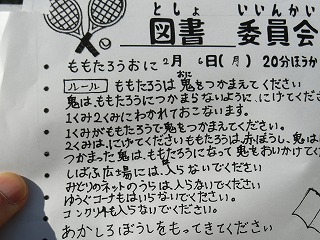 としょ いいんかい
図書 委員会
ももたろうおに 2月 6日(月) 20分ほうか
ルール ももたろうは鬼をつかまえてください
おに
鬼は、ももたろうにつかまらないように、にげてくださ
1くみ2くみにわかれておこないます。
1くみがももたろうで鬼をつかまえてください。
2くみは、にげてくださいももたろうは、赤ぼうし、鬼は
つかまった鬼は、ももたろうになって鬼をおいかけてく
しばふ広場には、入らないでください
みどりのネットのうらは、入らないでください
ゆうぐコーナもはいらないでください。
コンクリ中も入らないでください。
あかしろぼうしをもってきてください